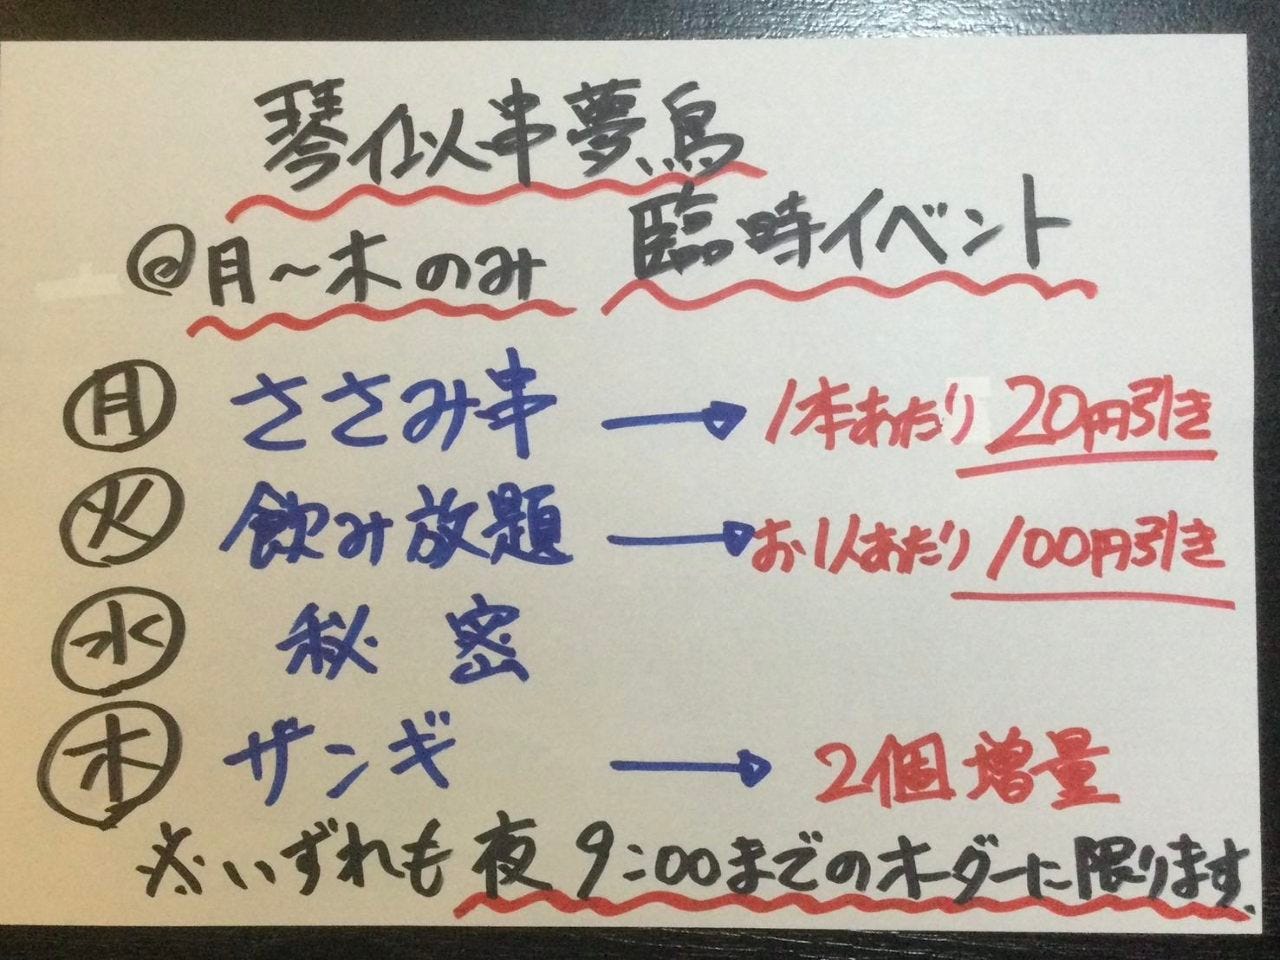 琴似串夢鳥
臨時イベント
@月〜木のみ
月 ささみ串 → 1本あたり 20円引き
火 飲み放題 → お1人あたり 100円引き
水 秘密
木 ザンギ → 2個増量
※いずれも夜9:00までのオーダーに限ります。